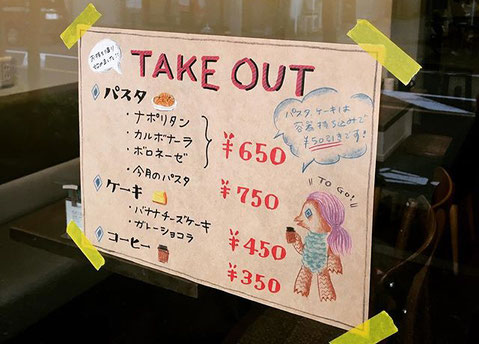 お持ち帰り
始めました!!
TAKE OUT
パスタ
・ナポリタン
・カルボナーラ
・ボロネーゼ
¥650
・今月のパスタ
¥750
ケーキ
・バナナチーズケーキ
・ガレーショコラ
¥450
コーヒー
¥350
パスタ、ケーキは
容器持ち込みで
¥50引きです!
TO GO!